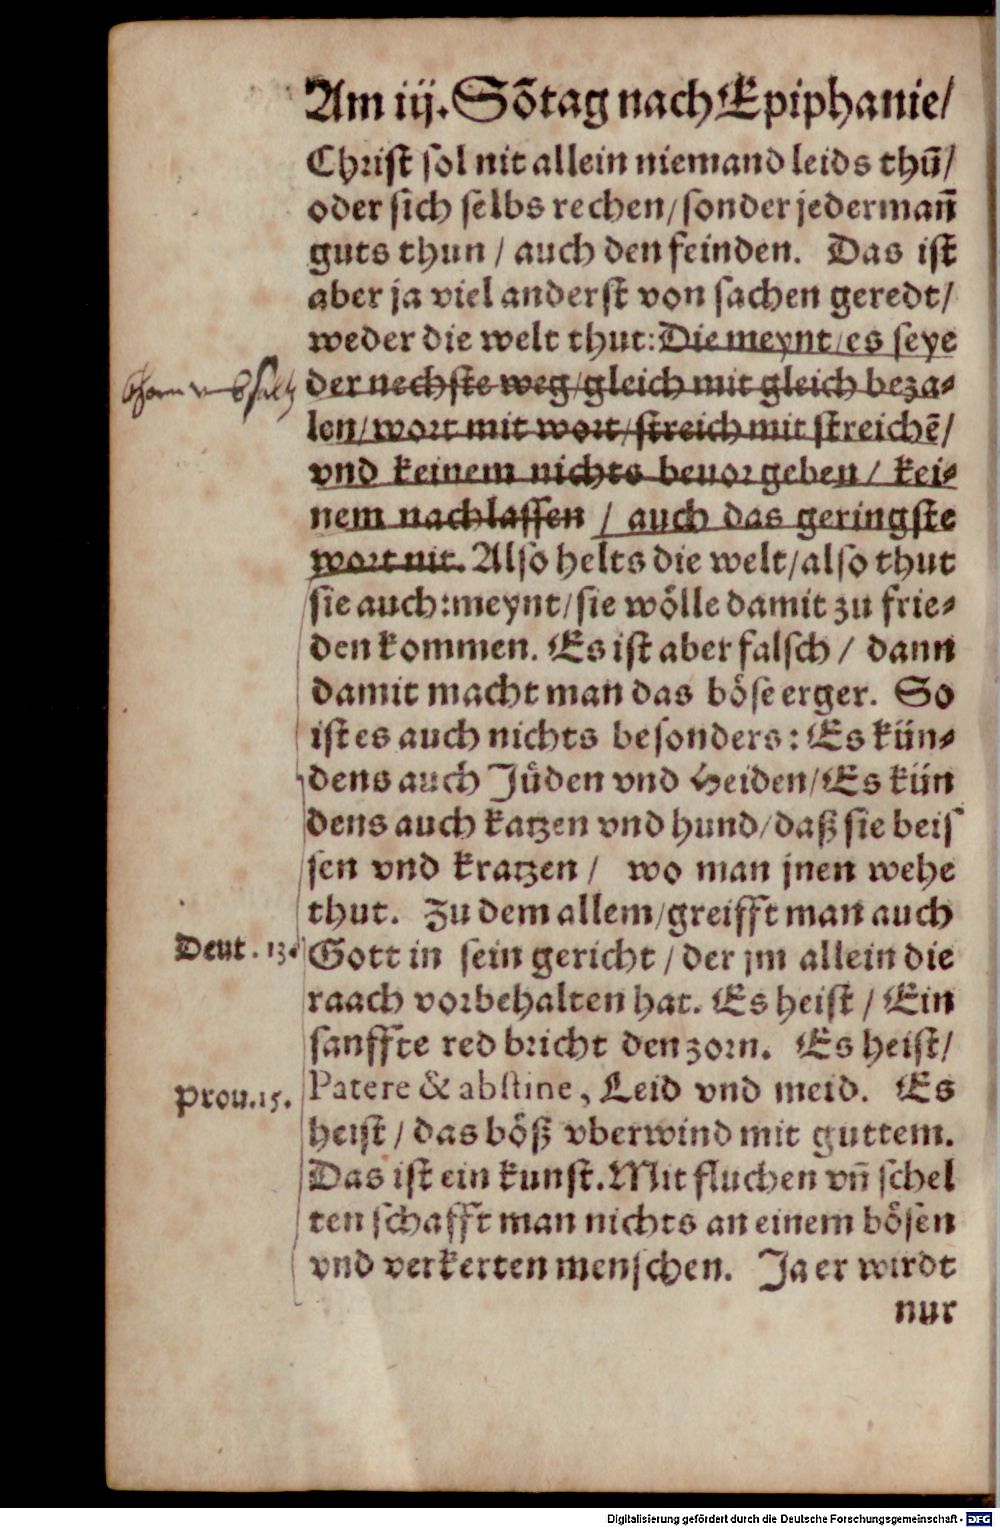 Am iij. Sõtag nach Epiphanie/
Christ sol nit allein niemand leids thũ/
oder sich selbs rechen/sonder jedermañ
guts thun / auch den feinden. Das ist
aber ja viel anderst von sachen geredt/
weder die welt thut: Die meynt/es seye
der nechste weg/gleich mit gleich beza-
len/wort mit wort/streich mit streichẽ/
vnd keinem nichts beuor geben / kei-
nem nachlassen / auch das geringste
wort nit. Also helts die welt/also thut
sie auch: meynt/sie wölle damit zu frie-
den kommen. Es ist aber falsch / dann
damit macht man das böse erger. So
ist es auch nichts besonders: Es kün-
dens auch Jüden vnd Heiden/Es kün
dens auch katzen vnd hund/daß sie beis
sen vnd kratzen / wo man jnen wehe
thut. Zu dem allem/greifft man auch
Deut. 13.
Gott in sein gericht / der jm allein die
raach vorbehalten hat. Es heist / Ein
sanffte red bricht den zorn. Es heist/
Prou.15.
Patere & abstine, Leid vnd meid. Es
heist / das böß vberwind mit guttem.
Das ist ein kunst. Mit fluchen vñ schel
ten schafft man nichts an einem bösen
vnd verkerten menschen. Ja er wirdt
nur
Digitalisierung gefördert durch die Deutsche Forschungsgemeinschaft - DFG